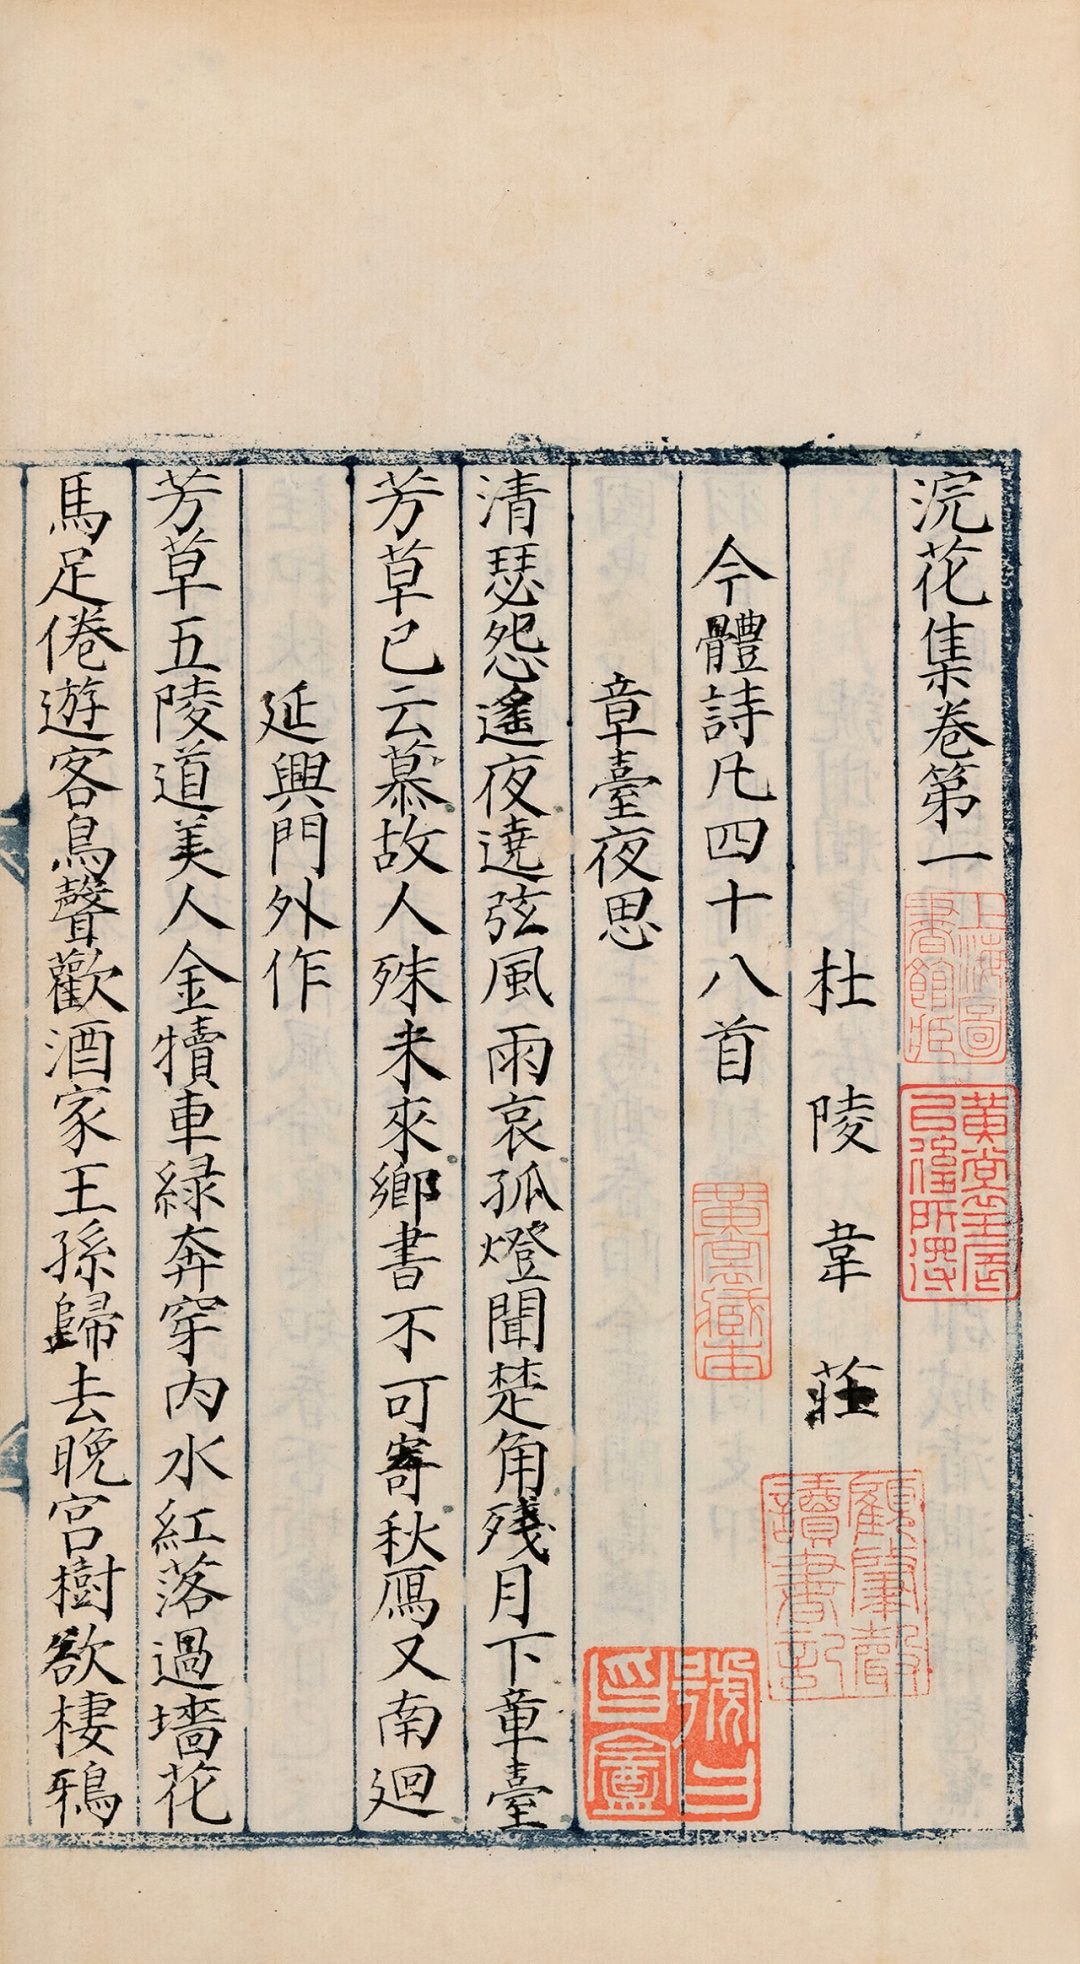 浣花集卷第一
杜陵韋莊
今體詩凡四十八首
章臺夜思
清瑟怨遙夜遶弦風雨哀孤燈聞楚角殘月下章臺
芳草已云慕故人殊未來鄉書不可寄秋鴈又南迴
延興門外作
芳草五陵道美人金犢車緑奔穿内水紅落過墻花
馬足倦遊客鳥聲歡酒家王孫歸去晚宮樹欲棲鴉
上海圖書館藏
顧肇聲讀書記